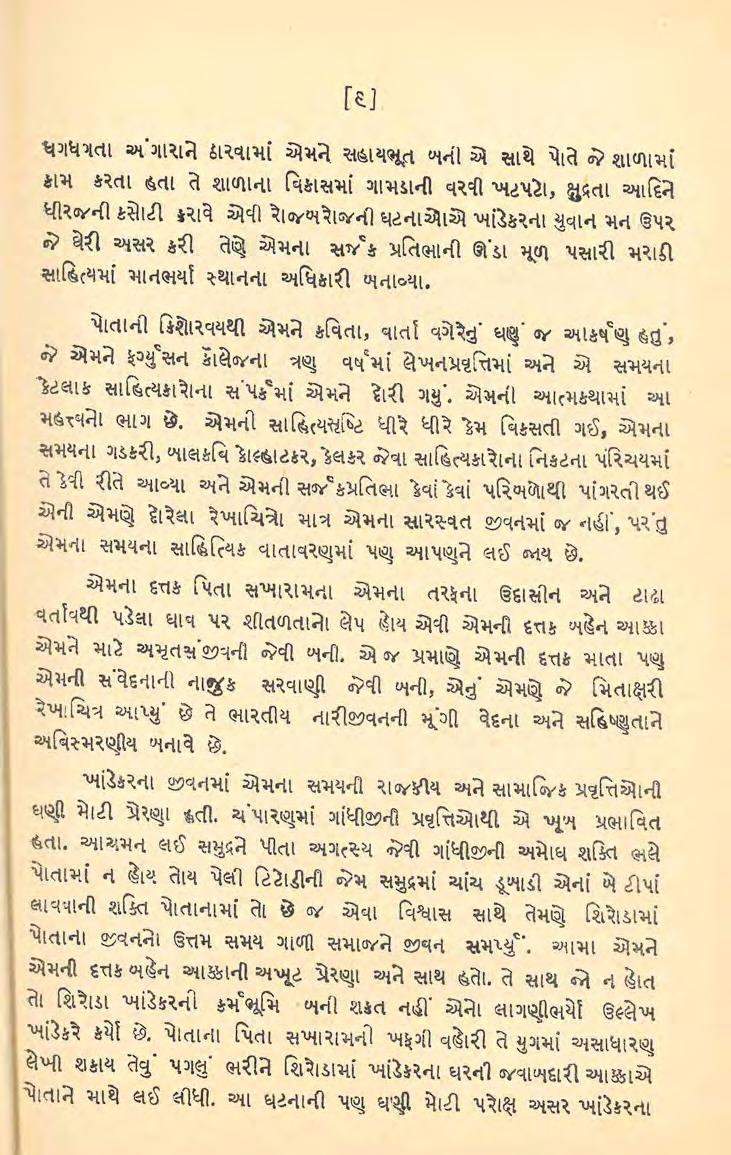 [૯]
ધગધગતા અંગારાને ઠારવામાં એમને સહાયભૂત બની એ સાથે પોતે જે શાળામાં
કામ કરતા હતા તે શાળાના વિકાસમાં ગામડાની વરવી ખટપટો, ક્ષુદ્રતા આદિને
ધીરજની કસોટી કરાવે એવી રોજબરોજની ઘટનાઓએ ખાંડેકરના યુવાન મન ઉપર
જે ઘેરી અસર કરી તેણે એમના સર્જક પ્રતિભાની ઊંડા મૂળ પસારી મરાઠી
સાહિત્યમાં માનભર્યા સ્થાનના અધિકારી બનાવ્યા.
પોતાની કિશોરવયથી એમને કવિતા, વાર્તા વગેરેનું ઘણું જ આકર્ષણ હતું,
જે એમને ફર્ગ્યુસન કૉલેજના ત્રણ વર્ષમાં લેખનપ્રવૃત્તિમાં અને એ સમયના
કેટલાક સાહિત્યકારોના સંપર્કમાં એમને દોરી ગયું. એમની આત્મકથામાં આ
મહત્ત્વનો ભાગ છે. એમની સાહિત્યસૃષ્ટિ ધીરે ધીરે કેમ વિકસતી ગઈ, એમના
સમયના ગડકરી, બાલકવિ કોલ્હાટકર, કેલકર જેવા સાહિત્યકારોના નિકટના પરિચયમાં
તે કેવી રીતે આવ્યા અને એમની સર્જકપ્રતિભા કેવાં કેવાં પરિબળોથી પાંગરતી થઈ
એની એમણે દોરેલા રેખાચિત્રો માત્ર એમના સારસ્વત જીવનમાં જ નહીં, પરંતુ
એમના સમયના સાહિત્યિક વાતાવરણમાં પણ આપણને લઈ જાય છે.
એમના દત્તક પિતા સખારામના એમના તરફના ઉદાસીન અને ટાઢા
વર્તાવથી પડેલા ઘાવ પર શીતળતાનો લેપ હોય એવી એમની દત્તક બહેન આક્કા
એમને માટે અમૃતસંજીવની જેવી બની. એ જ પ્રમાણે એમની દત્તક માતા પણ
એમની સંવેદનાની નાજુક સરવાણી જેવી બની, એનું એમણે જે મિતાક્ષરી
રેખાચિત્ર આપ્યું છે તે ભારતીય નારીજીવનની મૂંગી વેદના અને સહિષ્ણુતાને
અવિસ્મરણીય બનાવે છે.
ખાંડેકરના જીવનમાં એમના સમયની રાજકીય અને સામાજિક પ્રવૃત્તિઓની
ઘણી મોટી પ્રેરણા હતી. ચંપારણમાં ગાંધીજીની પ્રવૃત્તિઓથી એ ખૂબ પ્રભાવિત
હતા. આચમન લઈ સમુદ્રને પીતા અગત્સ્ય જેવી ગાંધીજીની અમોઘ શક્તિ ભલે
પોતામાં ન હોય તોય પેલી ટિટોડીની જેમ સમુદ્રમાં ચાંચ ડૂબાડી એનાં બે ટીપાં
લાવવાની શક્તિ પોતાનામાં તો છે જ એવા વિશ્વાસ સાથે તેમણે શિરોડામાં
પોતાના જીવનનો ઉત્તમ સમય ગાળી સમાજને જીવન સમર્પ્યું. આમા એમને
એમની દત્તક બહેન આક્કાની અખૂટ પ્રેરણા અને સાથ હતો. તે સાથ જો ન હોત
તો શિરોડા ખાંડેકરની કર્મભૂમિ બની શકત નહીં એનો લાગણીભર્યો ઉલ્લેખ
ખાંડેકરે કર્યો છે. પોતાના પિતા સખારામની ખફગી વહોરી તે યુગમાં અસાધારણ
લેખી શકાય તેવું પગલું ભરીને શિરોડામાં ખાંડેકરના ઘરની જવાબદારી આક્કાએ
પોતાને માથે લઈ લીધી. આ ઘટનાની પણ ઘણી મોટી પરોક્ષ અસર ખાંડેકરના